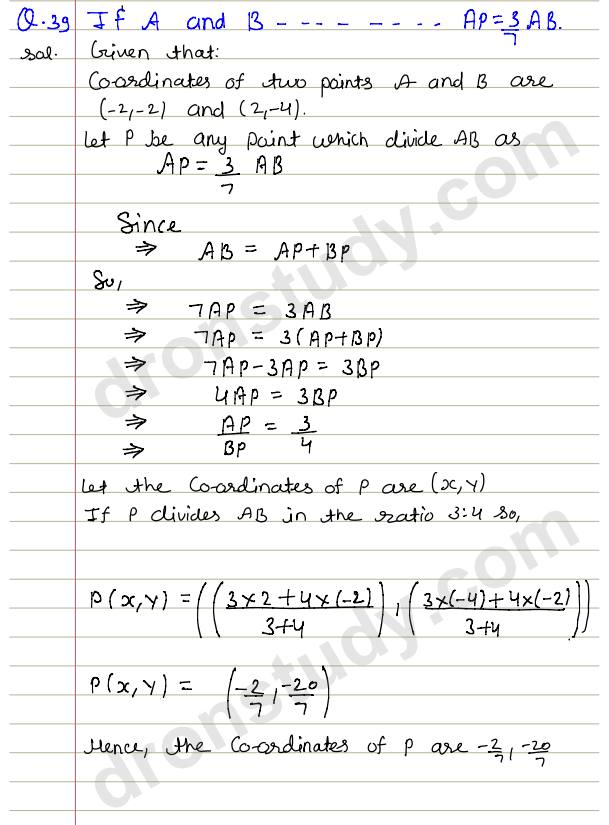 Q.39 If A and B - - - - - - - - - AP = 3/7 AB.
sol. Given that:
Co-ordinates of two points A and B are
(-2,-2) and (2,-4).
Let P be any point which divide AB as
AP = 3/7 AB
Since
⇒ AB = AP+BP
So,
⇒ 7AP = 3AB
⇒ 7AP = 3(AP+BP)
⇒ 7AP-3AP = 3BP
⇒ 4AP = 3BP
⇒ AP/BP = 3/4
⇒
Let the Co-ordinates of P are (x,y)
If P divides AB in the ratio 3:4 so,
P(x,y) = ((3×2+4×(-2)/3+4), (3×(-4)+4×(-2)/3+4))
P(x,y) = (-2/7, -20/7)
Hence, the Co-ordinates of P are -2/7, -20/7
dronstudy.com
dronstudy.com